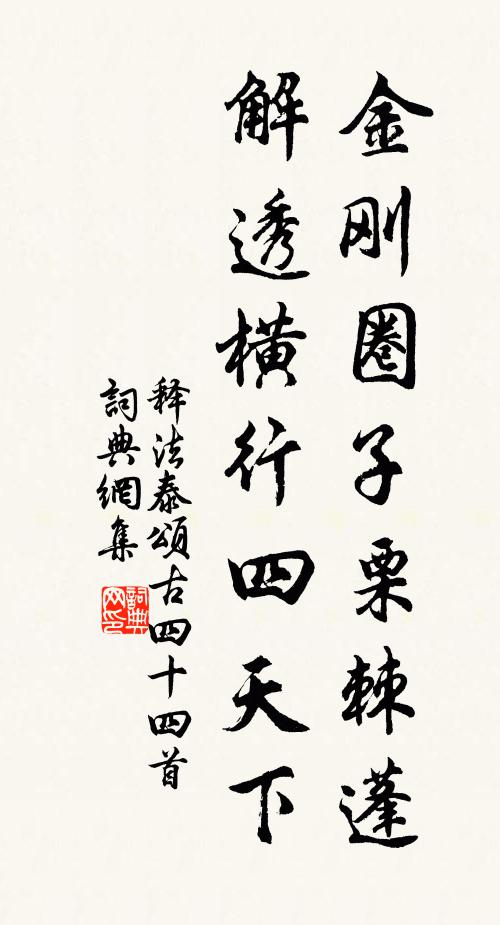 金剛圈子栗棘蓬
解透橫行四天下
释法泰頌古四十四首
詞典網集
詞典网印